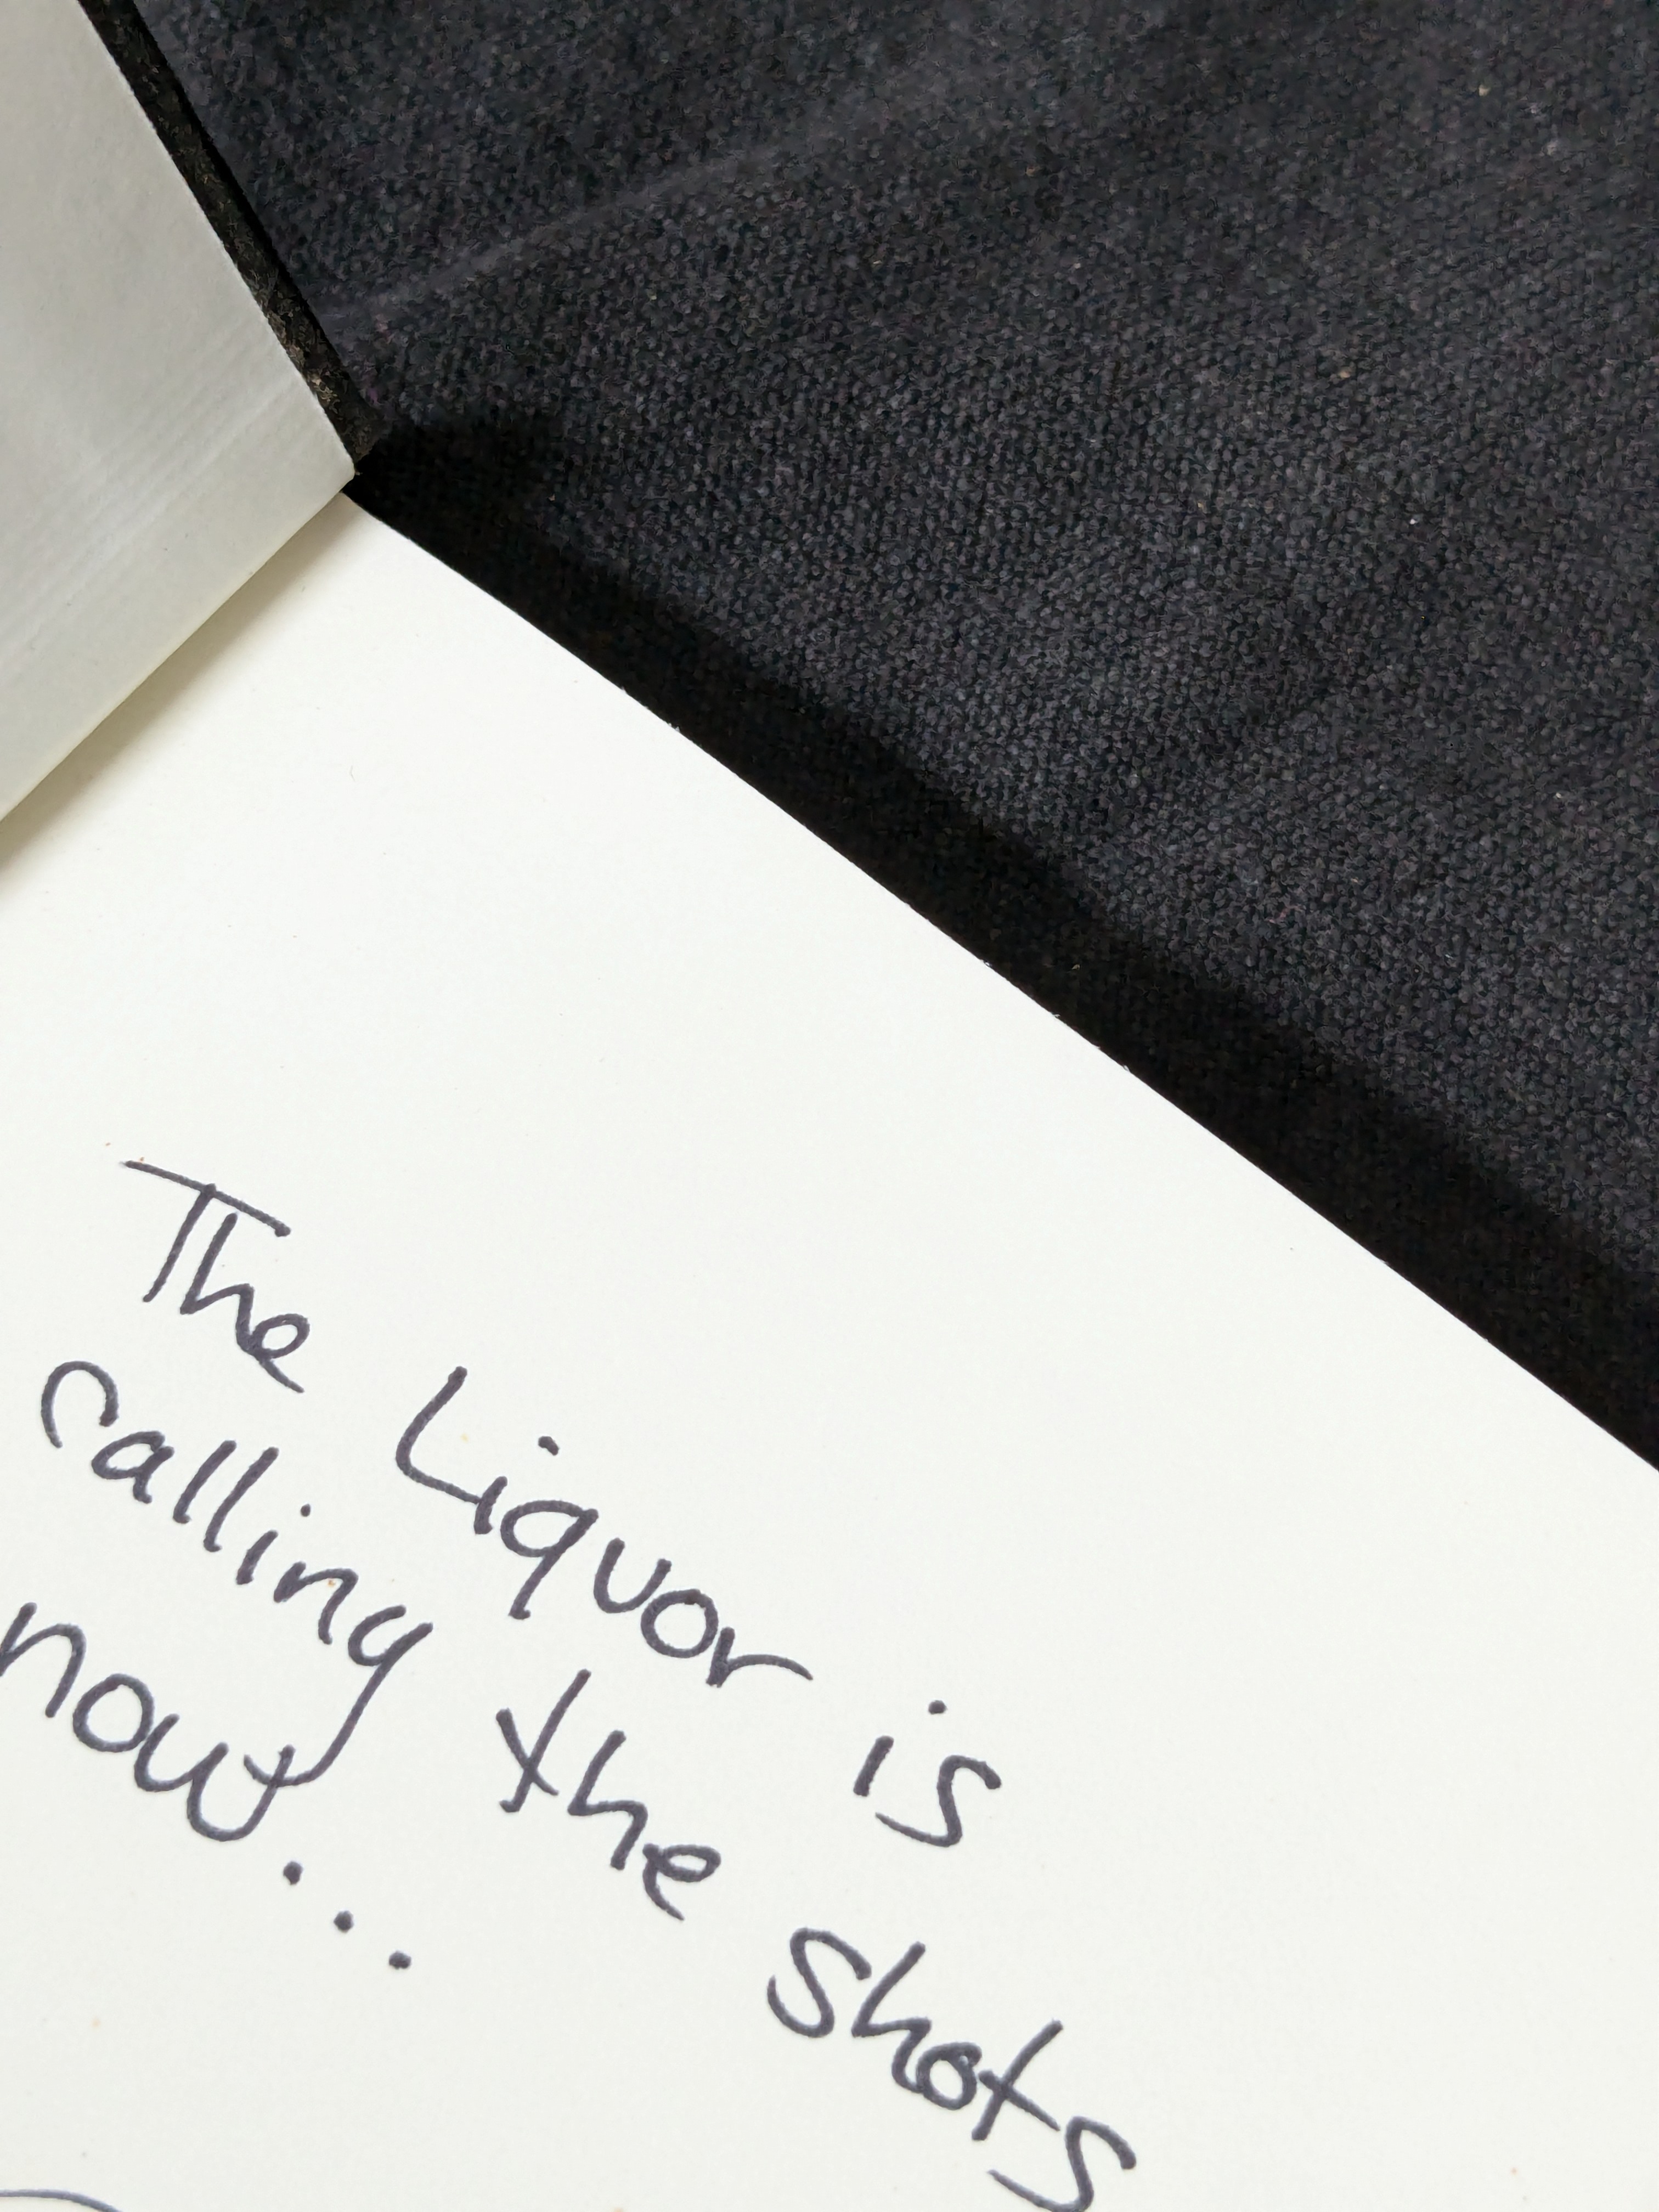 The Liquor is
calling the shots
now...